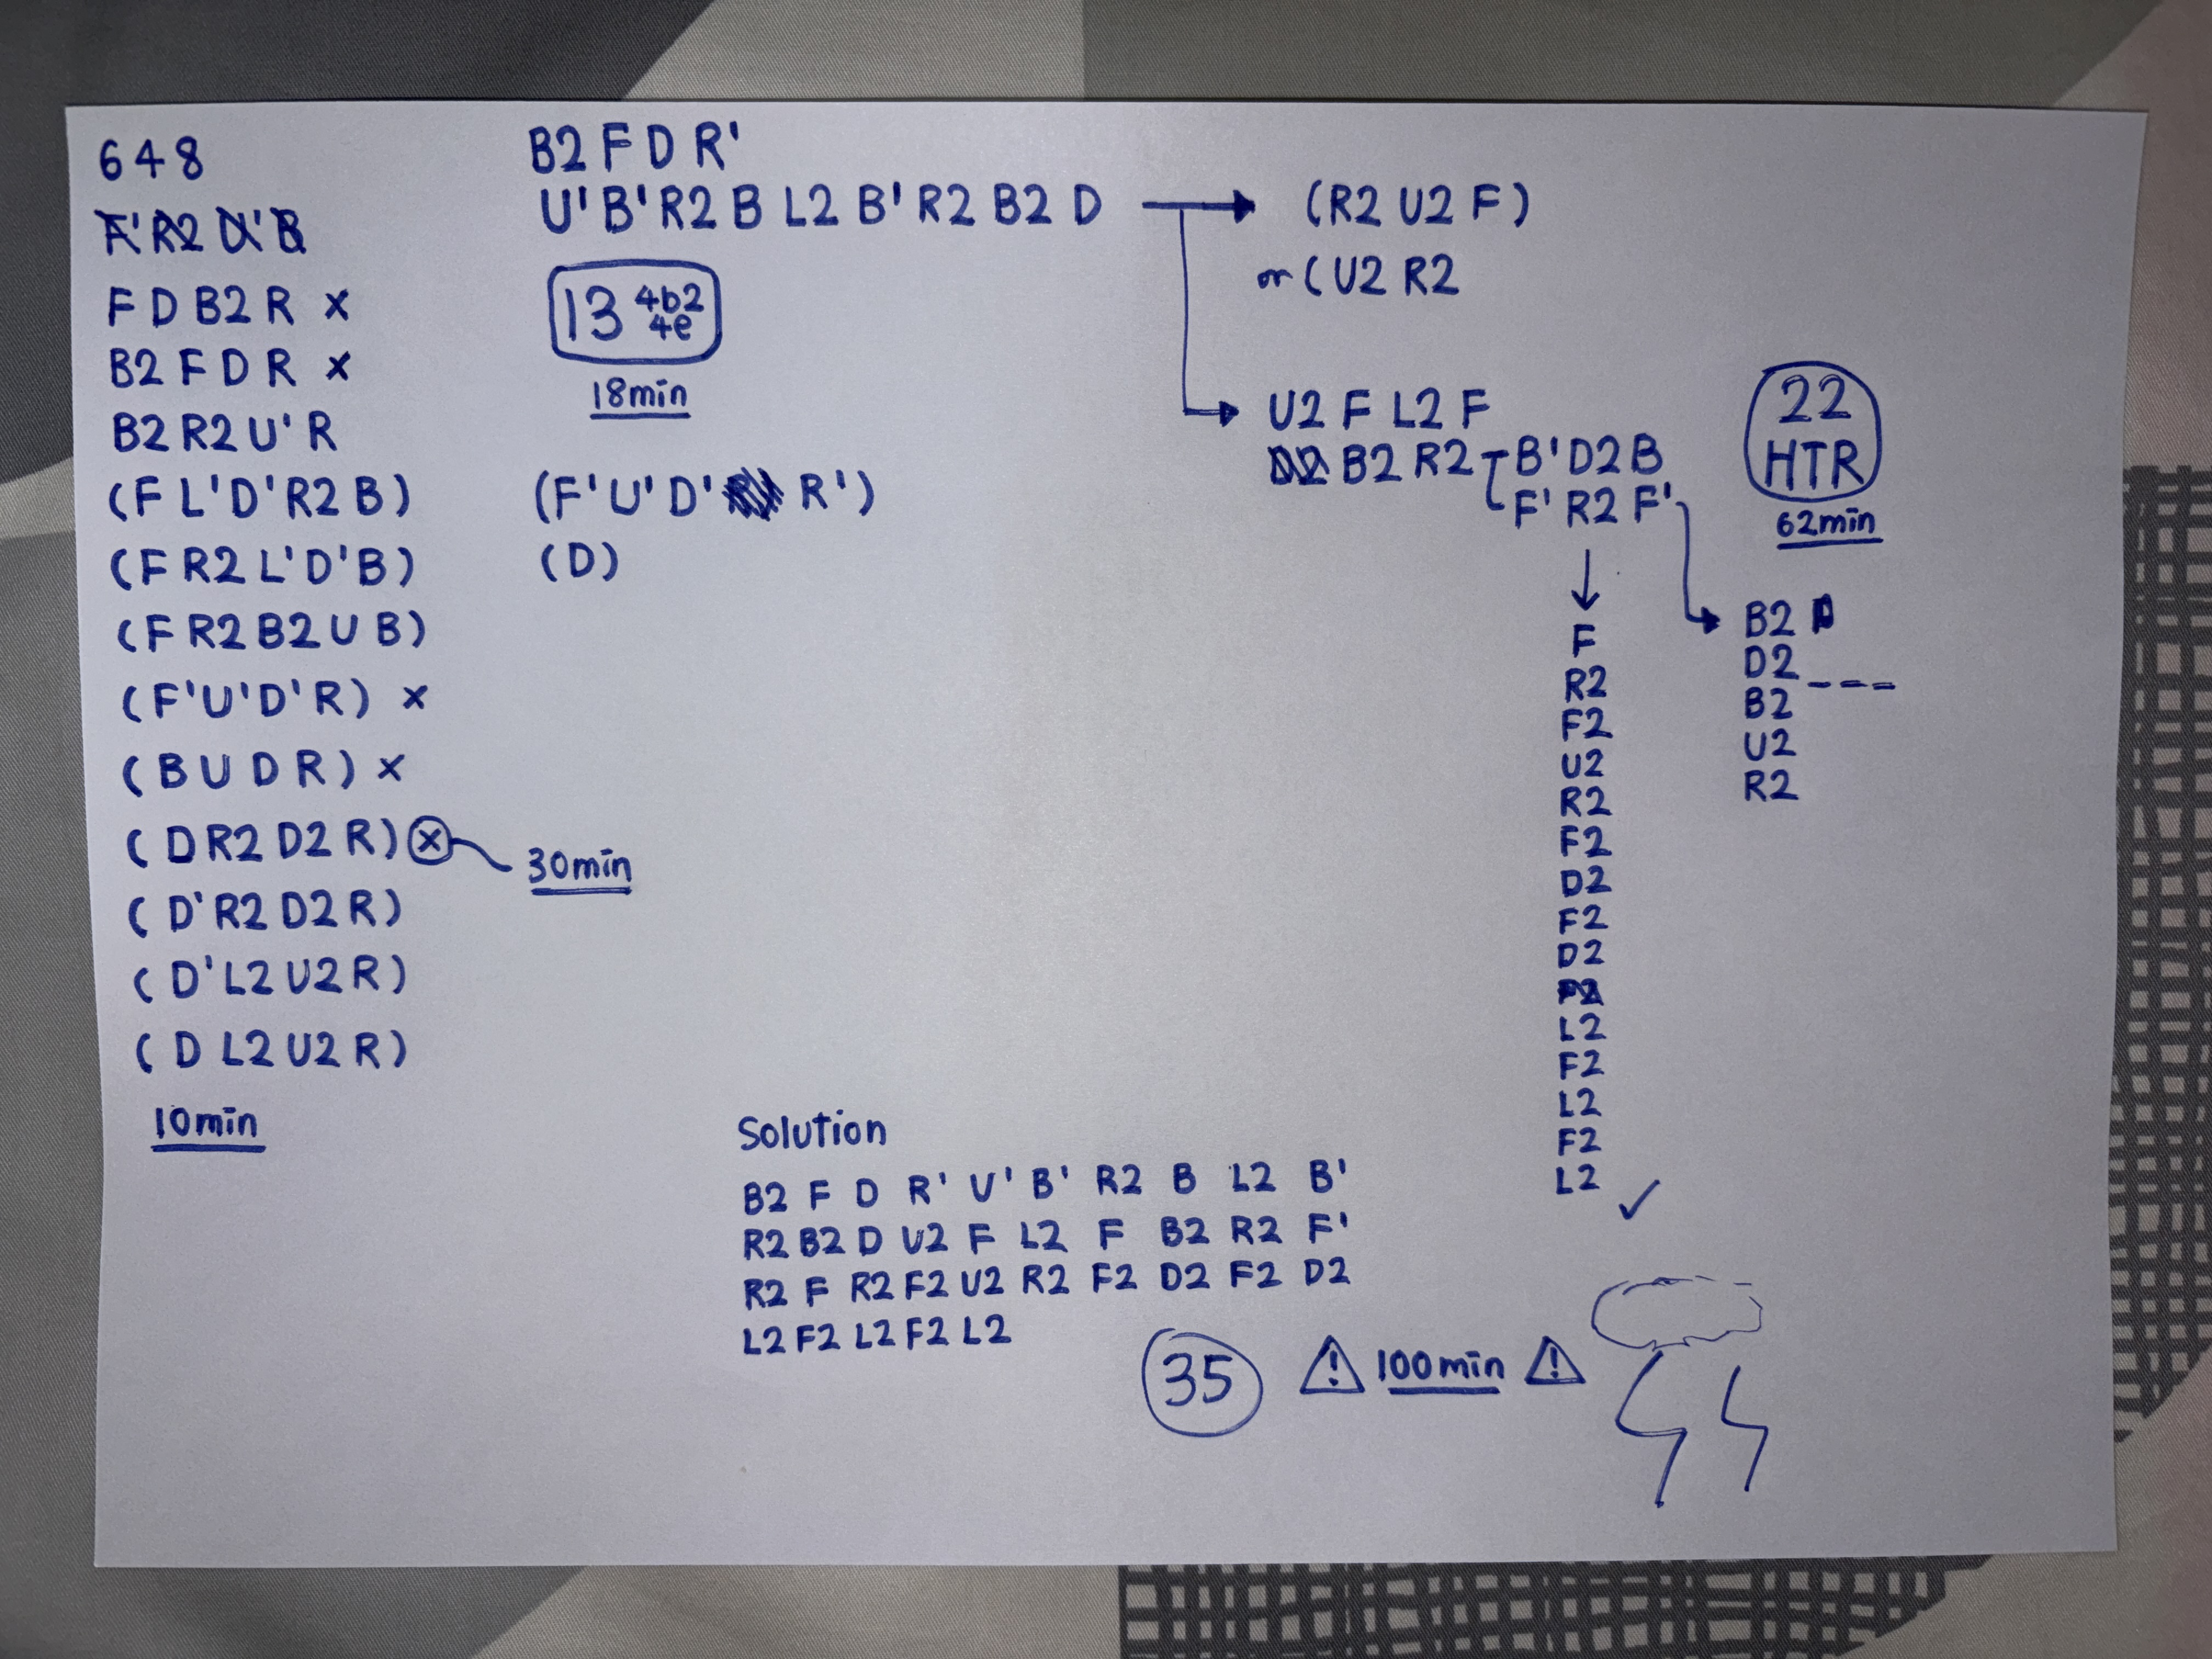 648
F'R2 U'B
F D B2 R x
B2 F D R x
B2 R2 U' R
(F L' D' R2 B)
(F R2 L' D' B)
(F R2 B2 U B)
(F' U' D' R) x
(B U D R) x
(D R2 D2 R) x
30min
(D' R2 D2 R)
(D' L2 U2 R)
(D L2 U2 R)
10min
B2 F D R'
U' B' R2 B L2 B' R2 B2 D
13 4b2
4e
18min
(F' U' D' R')
(D)
(R2 U2 F)
or (U2 R2
U2 F L2 F
D2 B2 R2 B' D2 B
F' R2 F'
22
HTR
62min
F
R2
F2
U2
R2
F2
D2
F2
D2
L2
F2
L2
F2
L2 ✓
B2
D2 ---
B2
U2
R2
Solution
B2 F D R' U' B' R2 B L2 B'
R2 B2 D U2 F L2 F B2 R2 F'
R2 F R2 F2 U2 R2 F2 D2 F2 D2
L2 F2 L2 F2 L2
35
⚠ 100min ⚠